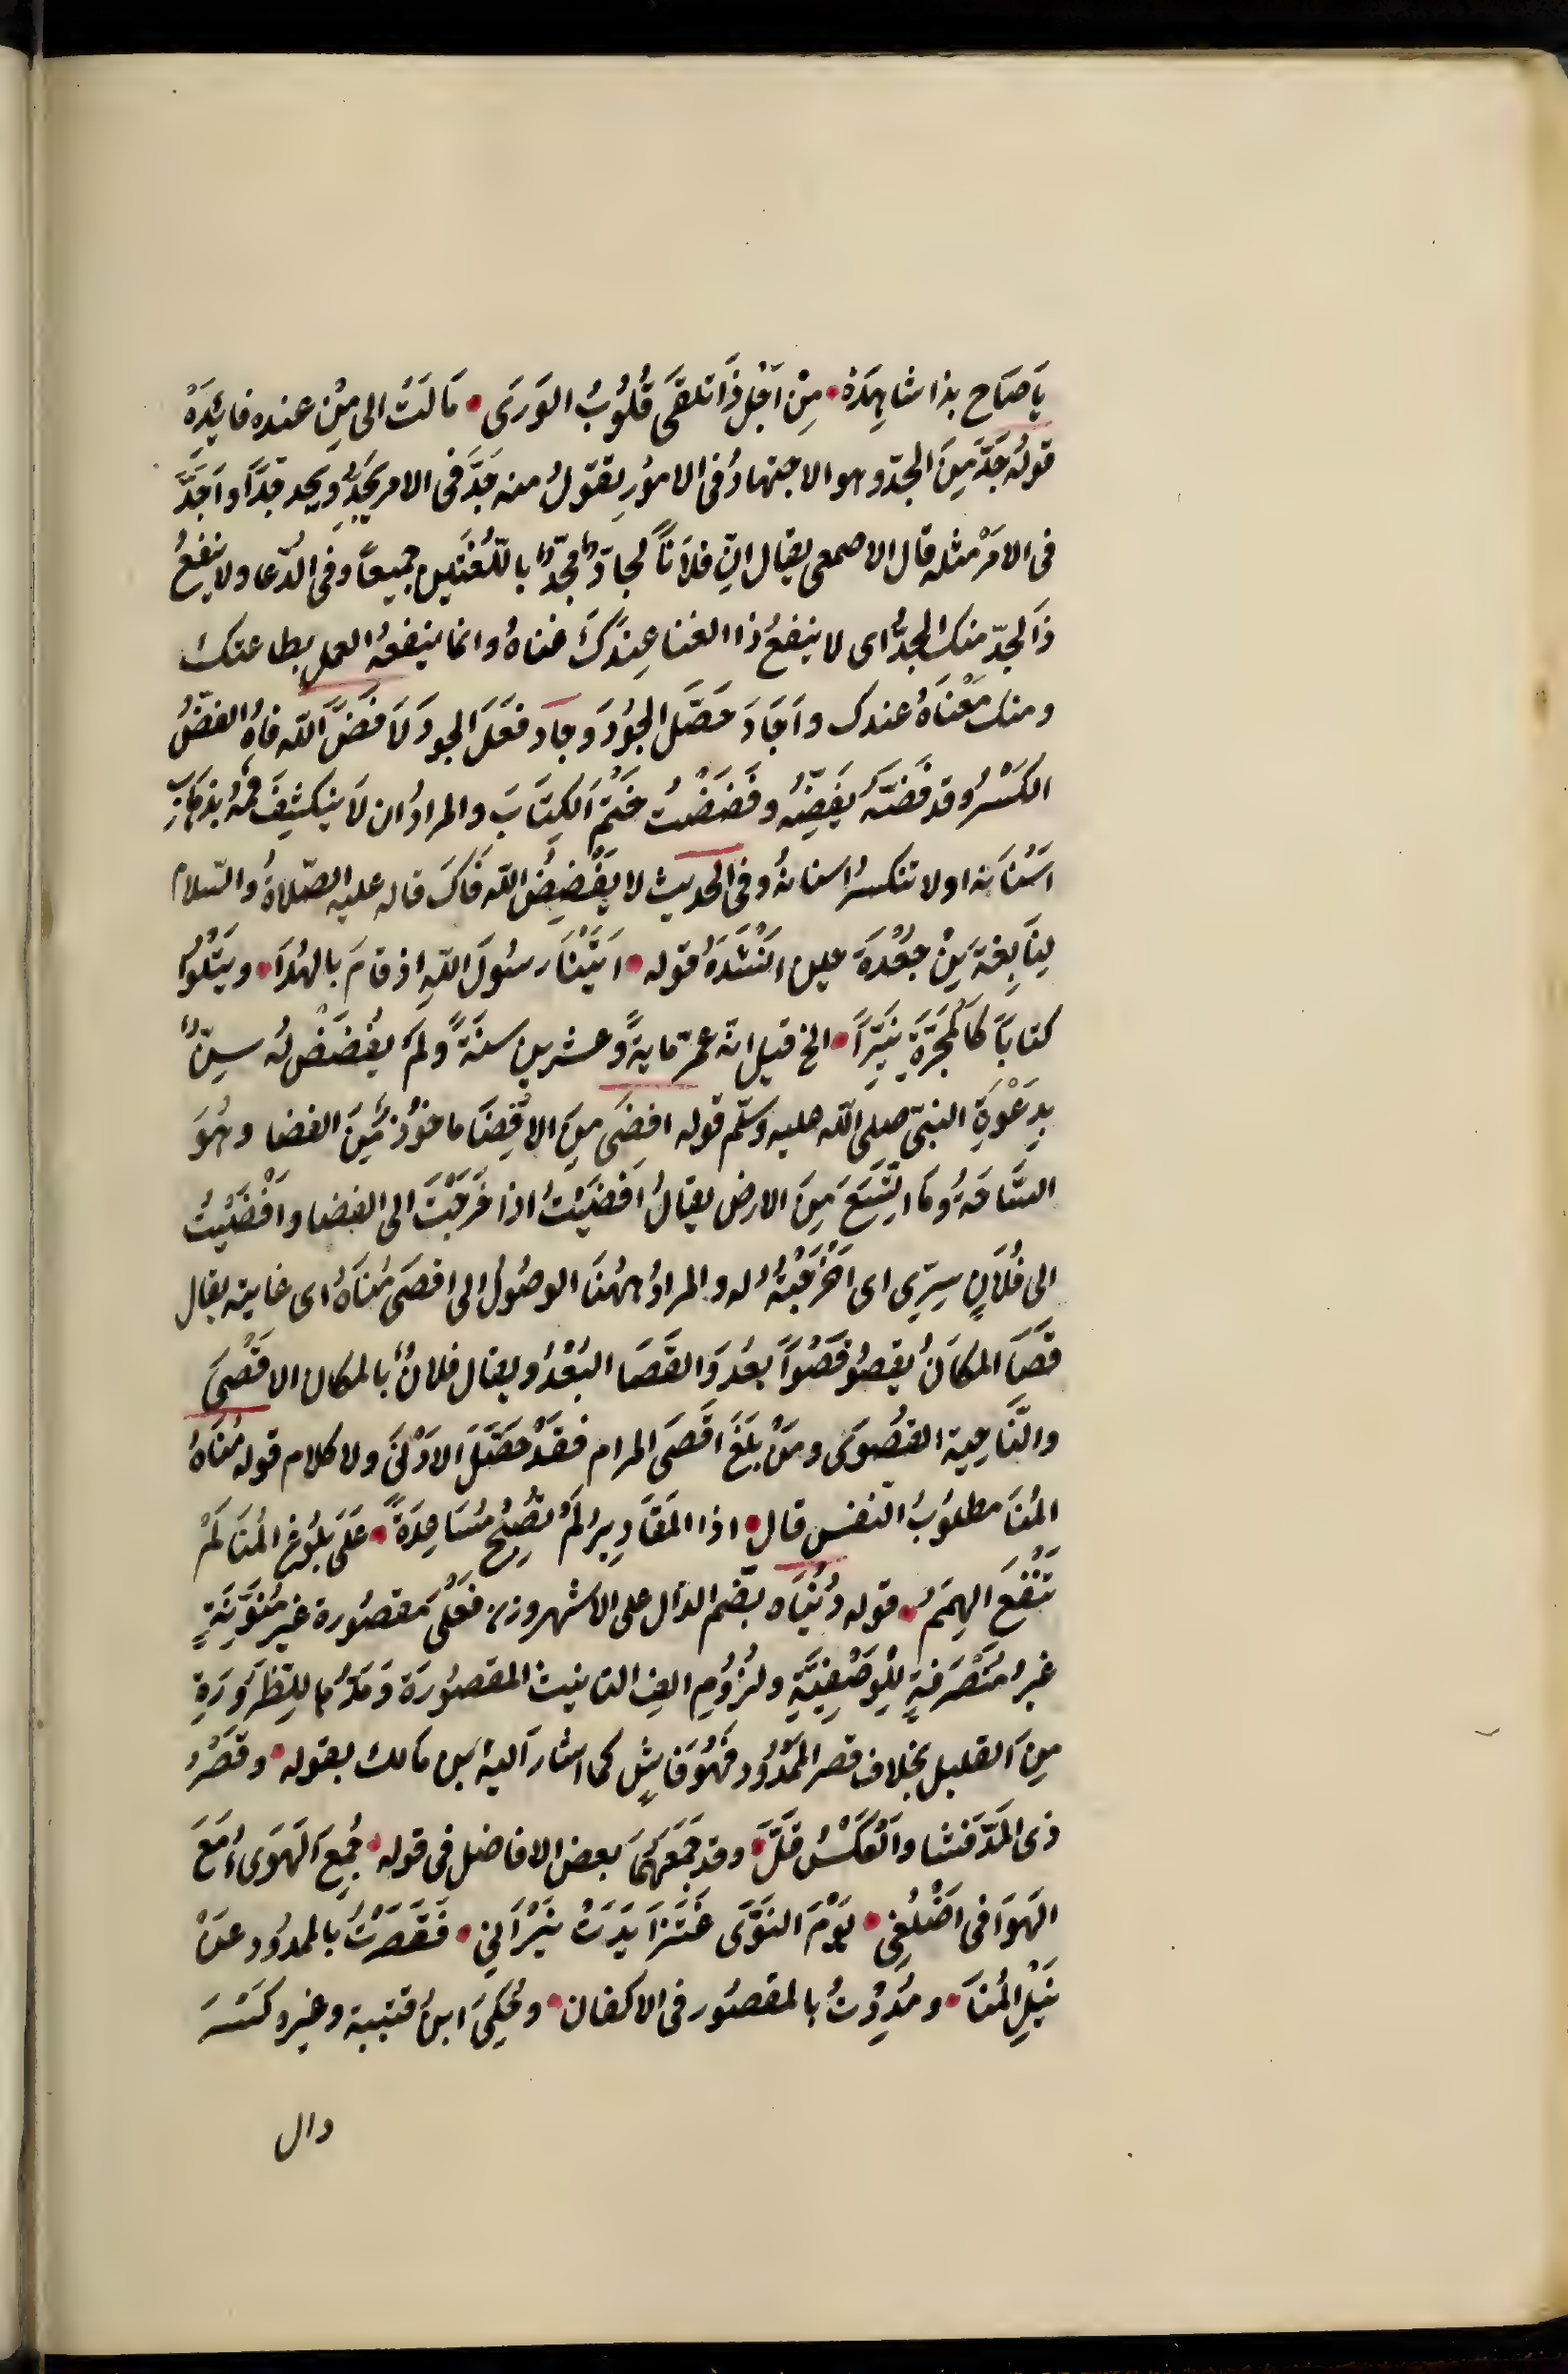 يَا صَاحِ بذا شاهِدَهْ • مِنْ اَجْلِ ذَا تلقَى قُلُوبُ الوَرَى • مَالَتْ الى مَنْ عنده فائِدَهْ
قولهُ جَدَّ مِنَ الجدّ وهو الاجتهادُ فى الامُورِ يقولُ منه جَدَّ فى الامر يَجِدُّ ويجد جِدًّا واَجَدَّ
فى الامرْ مثله قال الاصمعى يقال انّ فلاناً لجادٌّ مجدٌّ باللُّغَتَين جميعاً وفى الدّعا ولا ينفعُ
ذَا لجدّ منك الجدُّ اى لا ينفعُ ذا الغنا عِندَكَ غناهُ وانما ينفعه العمل بطاعتك
ومنك مَعْنَاهُ عندك واَجَادَ حَصَّلَ الجُوْدَ وجادَ فعَلَ الجودَ لَا فَضَّ الله فاهُ الفضّ
الكَسْرُ وقد فَضَّهُ يَفضّهُ وفَضَضْتُ خَتْمَ الكِتَابَ والمرادُ ان لَا ينكشِفَ فَمُهُ بذهابِ
اَسْنانه اولا تنكسرُ اسنانهُ وفى الحديث لا يَفْضِضُ الله فَاكَ قاله عليه الصّلاةُ والسّلام
لِنَابِغة بَنِى جَعْدَةَ حين اَنْشدَهُ قوله • اَتَيْنَا رسُولَ اللهِ اذ قامَ بالهُدَا • ويَتْلُوا
كتابًا كَالمَجَرَّةِ نَيِّرَاً • الخ قيل انه عمرّ مايةً وعشرين سنَةً ولَمْ يُفْضَضْ لَه سِنٌّ
بِدَعْوَةِ النبىّ صلى الله عليه وسلّم قوله افضَى مِنَ الافضَا ماخوْذ مِنَ الفضا وهُوَ
السَّاحَةُ وَمَا اتَّسَعَ مِنَ الارض يقالُ اَفضَيْتُ اذا خَرَجْتَ الى الفضا واَفْضَيْتُ
الى فُلَانٍ سِرِّى اى اَخْرَجْتهُ له والمرادُ هٰهُنَا الوصُولُ الى اقصَى مُنَاهُ اى غايته يقال
قَصَا المكانُ يقصُو قصُوًّا بعُدَ وَالقَصَا البُعْدُ ويقال فلانٌ بالمكان الاقْصَى
والنّاحية القصْوَى ومَنْ بلَغَ اقصَى المرام فقَدْ حصَّلَ الادْنىَ ولا كلام قوله مُنَاهُ
المُنَا مطلوَبُ النّفس قال • اذا المَقاديرُ لَمْ تُصْبِحْ مُسَاعِدَةً • عَلَى بلُوغِ المُنَا لَمْ
تَنْفعِ الهِمَمُ • قوله دُنْيَاه بضّم الدال على الاشهر وزن فُعْلَى مقصُورة غير مُنَوَّنَةٍ
غيرُ مُنْصَرَفةٍ لِلْوَصْفِيَّةِ ولزُومِ الفِ التانيث المقصُورَة وَمَدُّها للِضَّرُورَةِ
مِنَ القليل بخلاف قصر الممْدُود فَهُوَ فَاشٍ كما اشار اليه ابن مالك بقوله • وقَصْرُ
ذى المَدّ فشا والعَكْسُ قلَّ • وقد جَمَعَهُمَا بعض الافاضل فى قوله • جُمِعَ الهَوَى مَعَ
الهوَا فى اَضْلُعِى • يَوْمَ النَوَى نِيْرَانِى • فَقَصَرْتُ بالممدُود عَنْ
نَيْلِ المُنَا • ومُدِدْتُ بالمقصُور فى الاكفان • وحُكِىَ ابنُ قتيبة وغيره كَسْرَ
دال